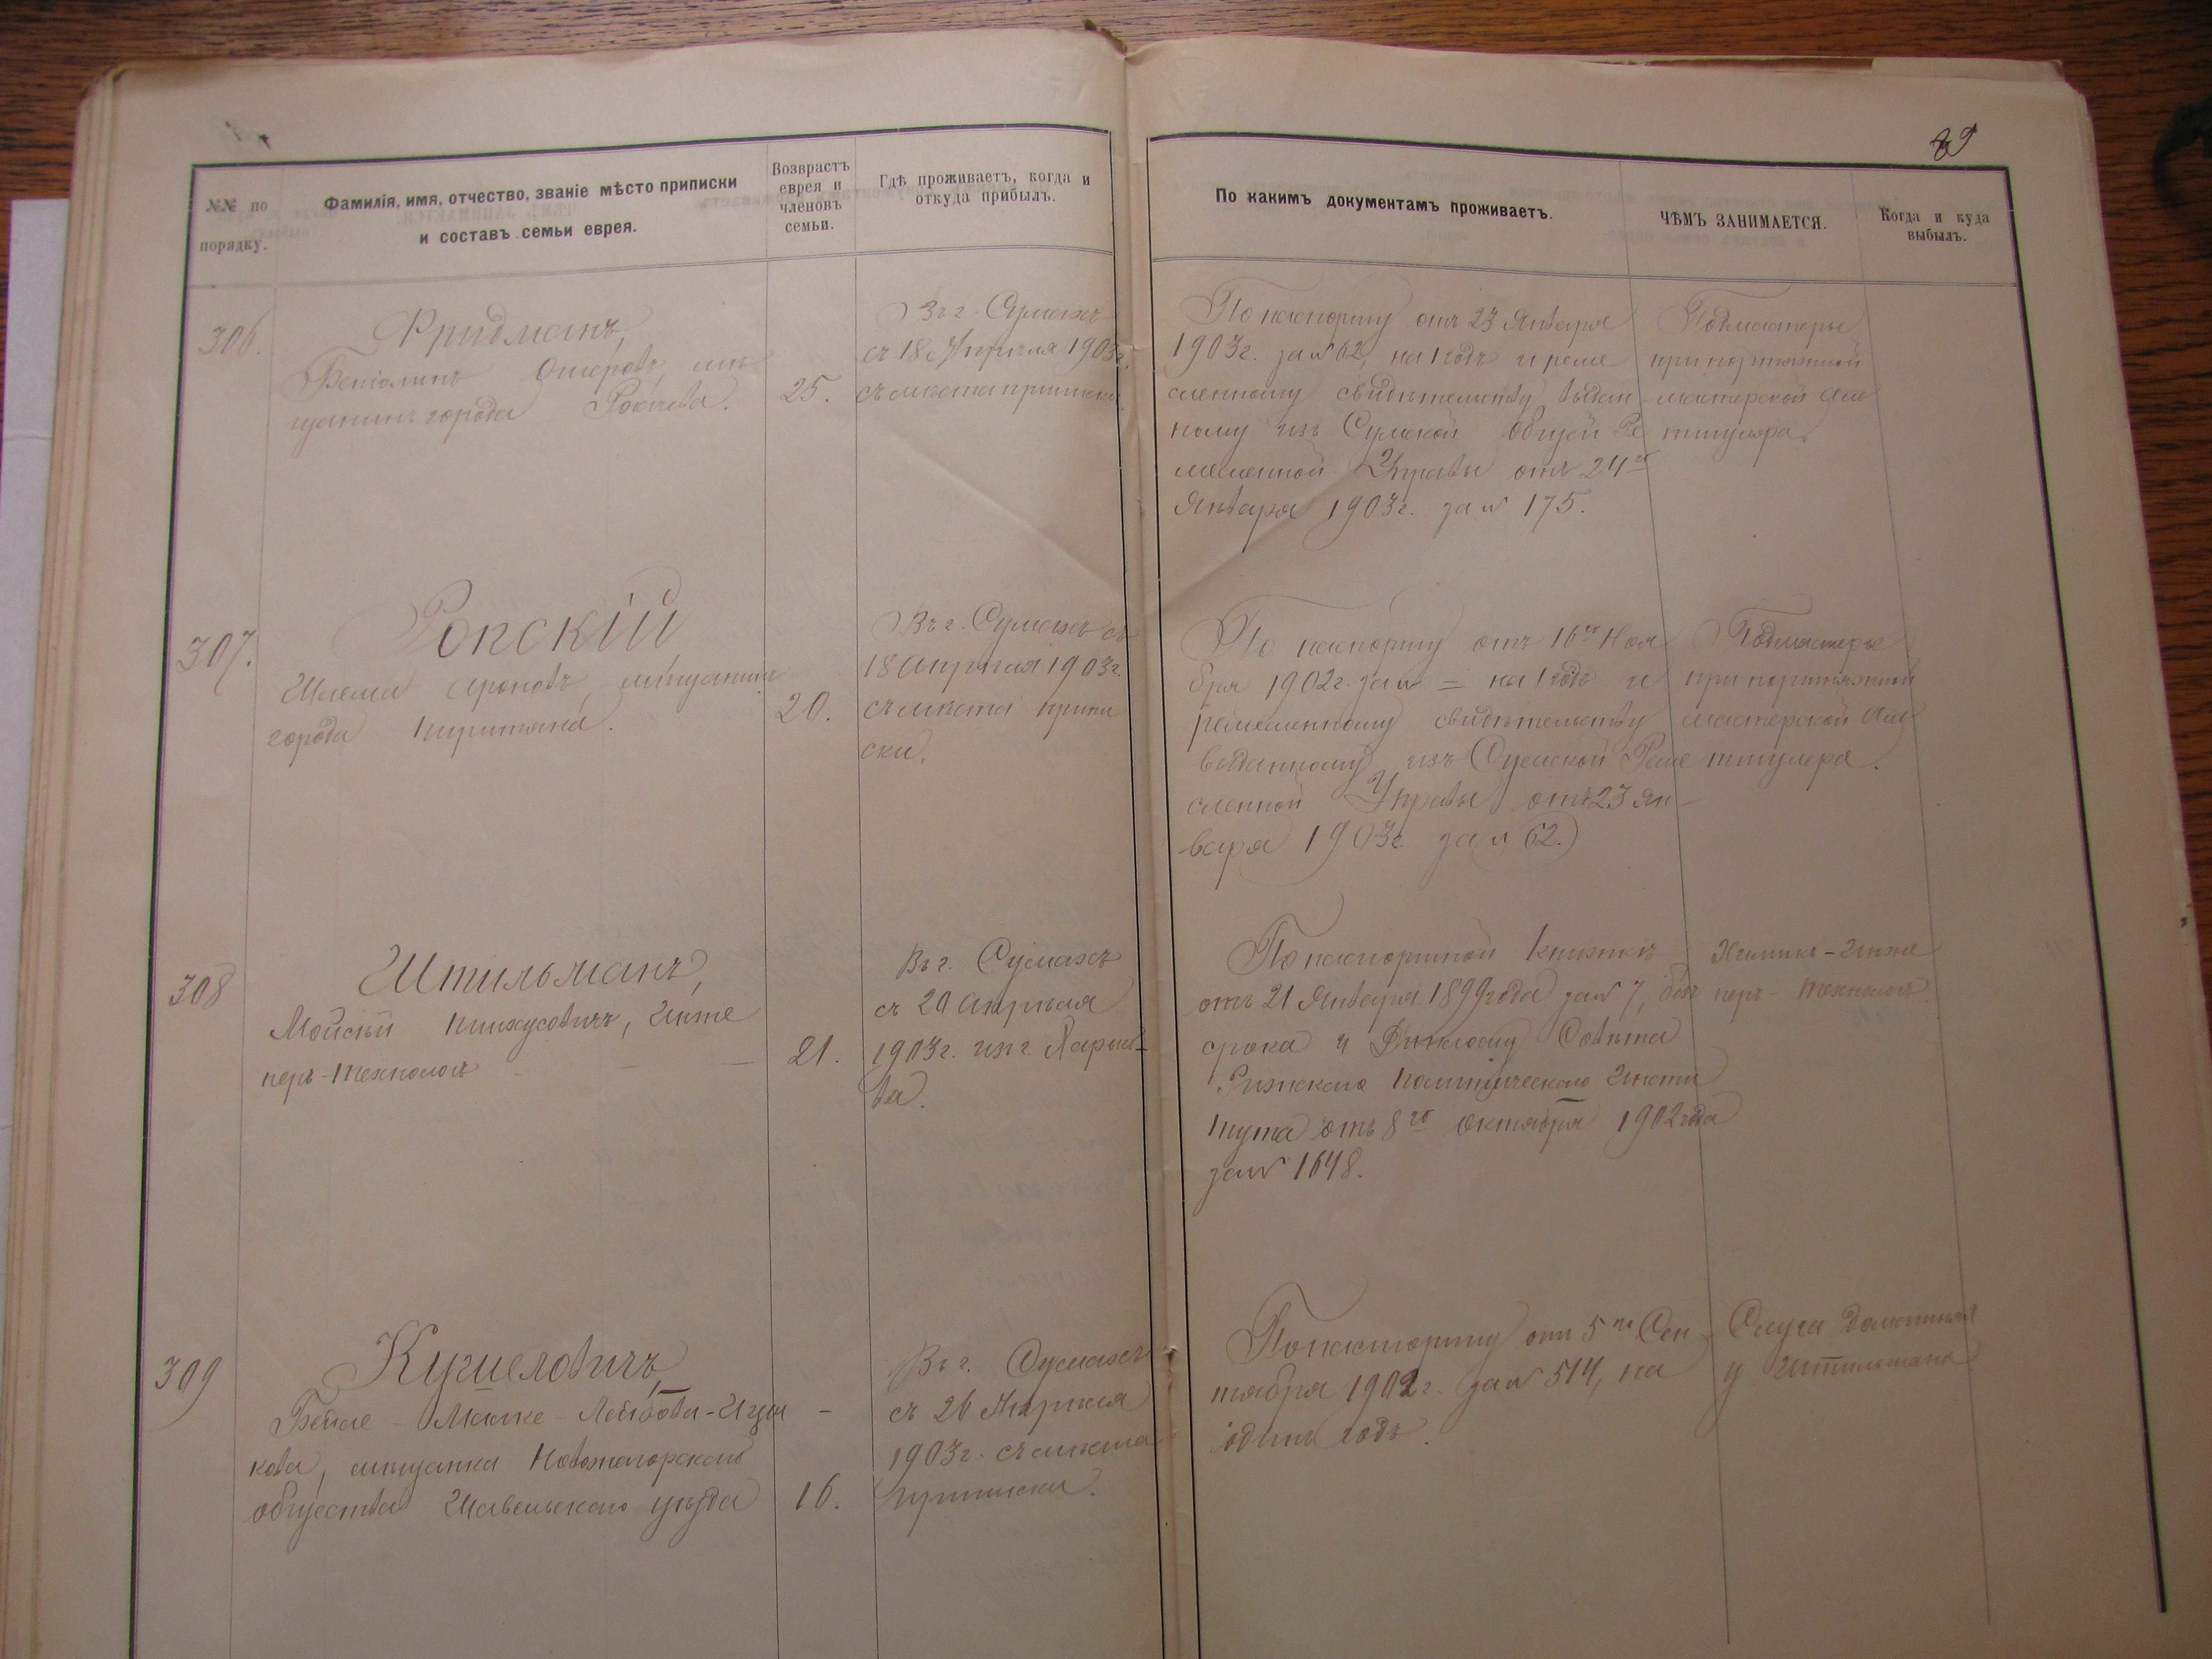 89
№№ по порядку.
Фамилія, имя, отчество, званіе мѣсто приписки
и составъ семьи еврея.
Возврастъ
еврея и
членовъ
семьи.
Гдѣ проживаетъ, когда и
откуда прибылъ.
По какимъ документамъ проживаетъ.
ЧѢМЪ ЗАНИМАЕТСЯ.
Когда и куда
выбылъ.
306.
Фридманъ,
Беніоминъ Ошеровъ, мѣ
щанинъ города
25.
Въ г. Сумахъ
съ 18 Апрѣля 1903г.
съ мѣста приписки
По паспорту отъ 23 Января
1903г. за № 62, на 1 годъ и реме
сленному свидѣтельству выдан
ному изъ Сумской Общей Ре
месленной Управы отъ 24го
Января 1903г. за № 175.
Подмастерье
при портняжной
мастерской
307.
Ропскій
Шлема Ароновъ, мѣщанинъ
города
20.
Въ г. Сумахъ съ
18 Апрѣля 1903г.
съ мѣста припи
ски.
По паспорту отъ 16го Ноя
бря 1902г. за № = на 1 годъ и
ремесленному свидѣтельству
выданному изъ Сумской Реме
сленной Управы отъ 23 Ян-
варя 1903г. за № 62.
Подмастерье
при портняжной
мастерской
308
Штильманъ,
Мойсей Пинхусовичъ, Инже
неръ-Технологъ
21.
Въ г. Сумахъ
съ 20 Апрѣля
1903г. изъ г. Харько-
ва.
По паспортной книжкѣ
отъ 21 Января 1899 года за № 7, безъ
срока и Диплому Совѣта
Рижскаго Политехническаго Инсти
тута отъ 8го Октября 1902 года
за № 1648.
Химикъ-Инже
неръ-Технологъ
309
Кушелевичъ,
Бейле-Малке Лейбова-Ицы
кова, мѣщанка Новожагорскаго
общества Шавельскаго уѣзда
-
16.
Въ г. Сумахъ
съ 26 Апрѣля
1903г. съ мѣста
приписки.
По паспорту отъ 5го Сен
тября 1902г. за № 514, на
одинъ годъ.
Слуга домашняя
у Штильмана